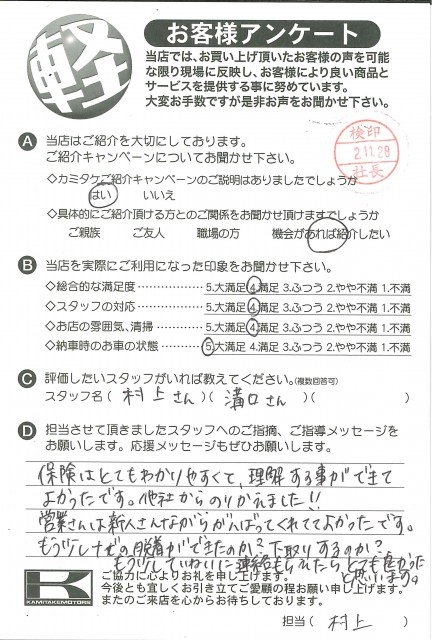 軽
お客様アンケート
当店では、お買い上げ頂いたお客様の声を可能
な限り現場に反映し、お客様により良い商品と
サービスを提供する事に努めています。
大変お手数ですが是非お声をお聞かせ下さい。
検印
2.11.28
社長
A 当店はご紹介を大切にしております。
ご紹介キャンペーンについてお聞かせ下さい。
◇カミタケご紹介キャンペーンのご説明はありましたでしょうか
はい いいえ
◇具体的にご紹介頂ける方とのご関係をお聞かせ頂けますでしょうか
ご親族 ご友人 職場の方 機会があれば紹介したい
B 当店を実際にご利用になった印象をお聞かせ下さい。
◇総合的な満足度 5.大満足 4.満足 3.ふつう 2.やや不満 1.不満
◇スタッフの対応 5.大満足 4.満足 3.ふつう 2.やや不満 1.不満
◇お店の雰囲気、清掃 5.大満足 4.満足 3.ふつう 2.やや不満 1.不満
◇納車時のお車の状態 5.大満足 4.満足 3.ふつう 2.やや不満 1.不満
C 評価したいスタッフがいれば教えてください。(複数回答可)
スタッフ名(村上さん)(溝口さん)( )
D 担当させて頂きましたスタッフへのご指摘、ご指導メッセージを
お願いします。応援メッセージもぜひお願いします。
保険はとてもわかりやすくて、理解する事ができて
よかったです。他社からのりかえました!!
営業さんは新人さんながらがんばってくれててよかったです。
もう少しナビの脱着ができたのか?下取りするのか?
もう少していねいに連絡もらえたら、とても良かった
と思います。
K
KAMITAKEMOTORS
ご協力に心よりお礼を申し上げます。
今後とも宜しくお引き立てご愛顧の程お願い申し上げます。
またのご来店を心からお待ちしております。
担当(村上)